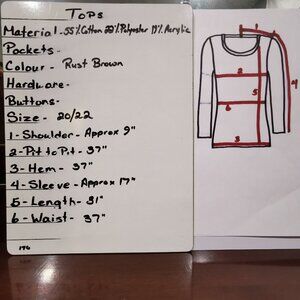 Tops
Material - 55% Cotton 28% Polyester 17% Acrylic
Pockets -
Colour - Rust Brown
Hardware -
Buttons -
Size - 20/22
1 - Shoulder - Approx 9"
2 - Pit to Pit - 37"
3 - Hem - 37"
4 - Sleeve - Approx 17"
5 - Length - 31"
6 - Waist - 37"
1
4
2
5
6
3